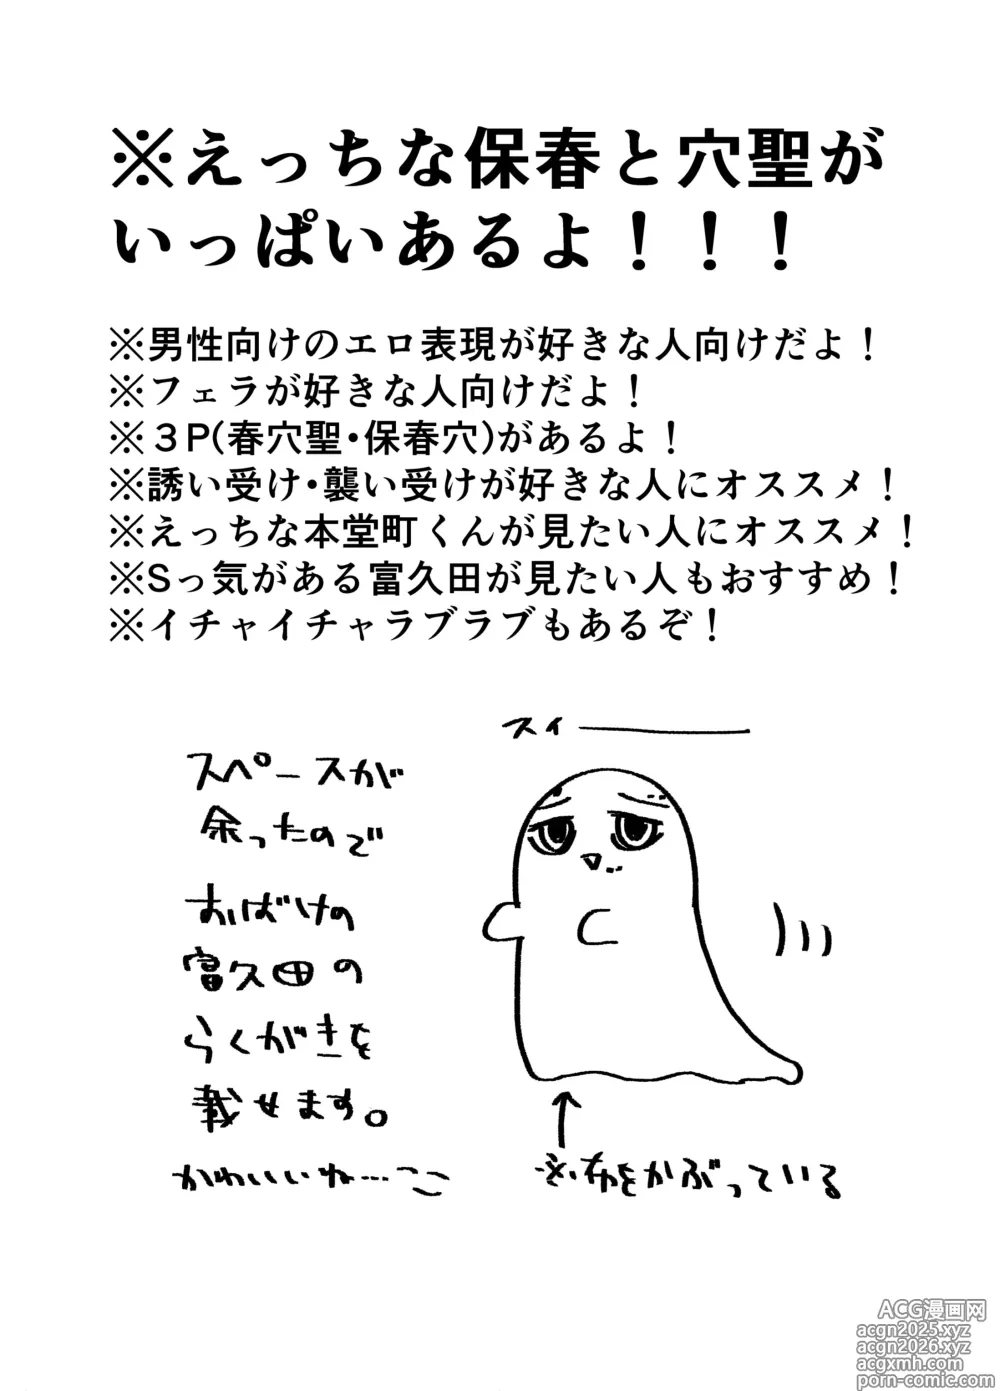 ※えっちな保春と穴聖が
いっぱいあるよ！！！
※男性向けのエロ表現が好きな人向けだよ！
※フェラが好きな人向けだよ！
※３P(春穴聖・保春穴)があるよ！
※誘い受け・襲い受けが好きな人にオススメ！
※えっちな本堂町くんが見たい人にオススメ！
※Sっ気がある富久田が見たい人もおすすめ！
※イチャイチャラブラブもあるぞ！
スペースが
余ったので
おばけの
富久田の
らくがきを
載せます。
かわいいね…
スィ―――
※布をかぶっている
ACG漫画网
acgn2025.xyz
acgn2026.xyz
acgxmh.com
porn-comic.com